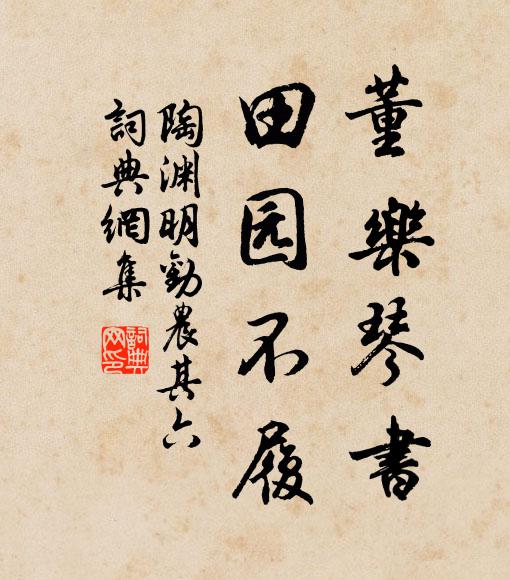 董樂琴書
田园不履
陶渊明勸農其六
詞典網集
詞典網印